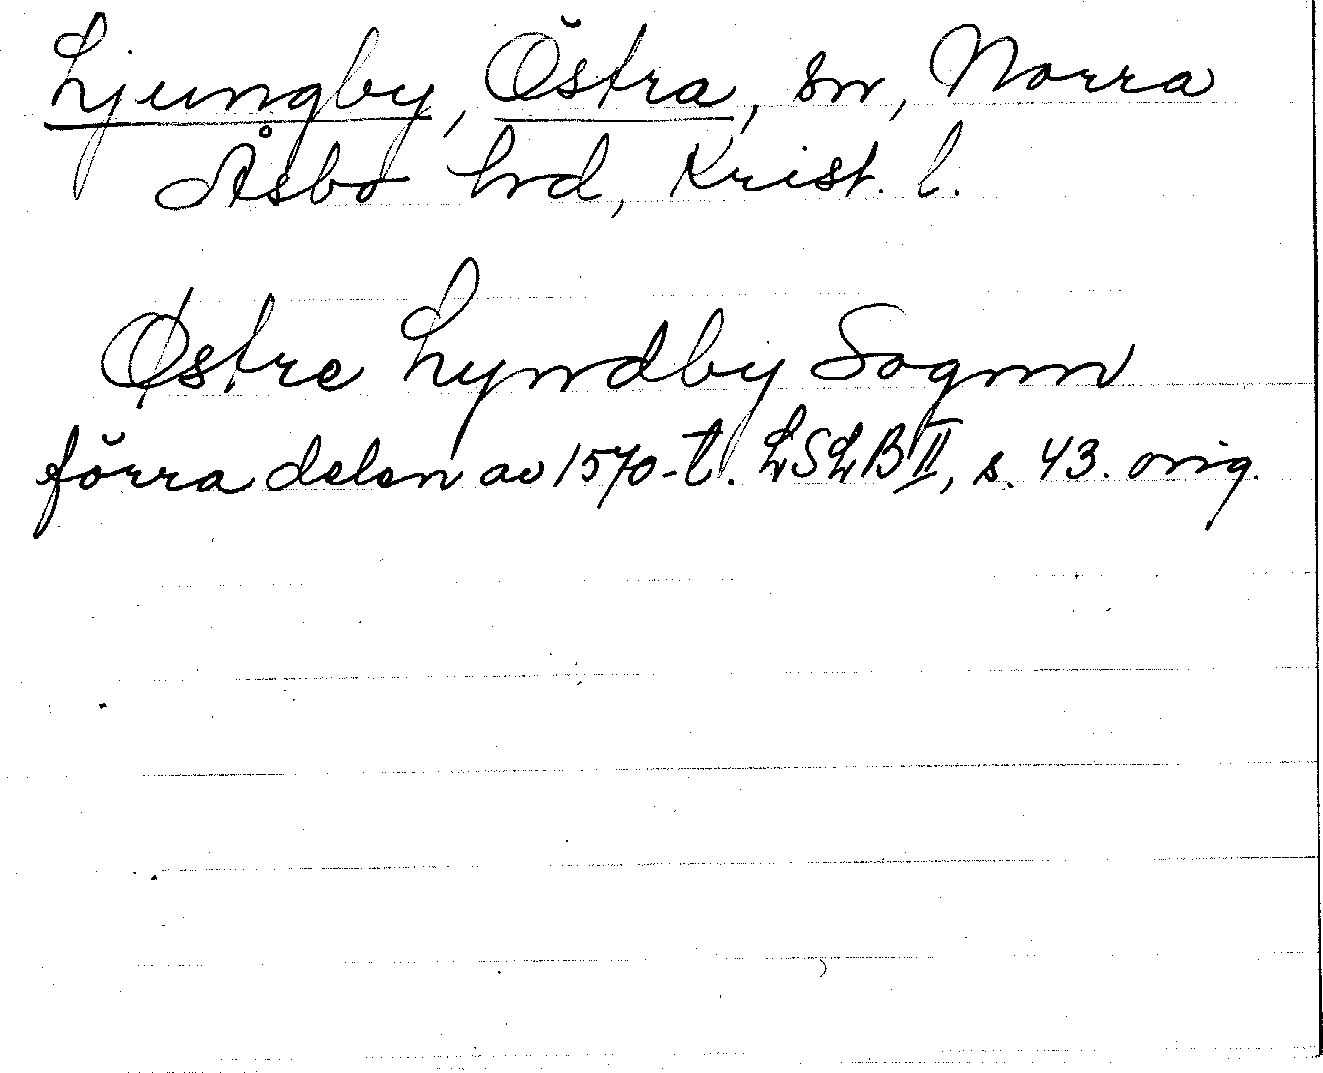 Ljungby, Östra, sn, Norra
Åsbo hrd, Krist. l.
Østre Lyndby Sognn
förra delen av 1570-t. LSLB II, s. 43. orig.